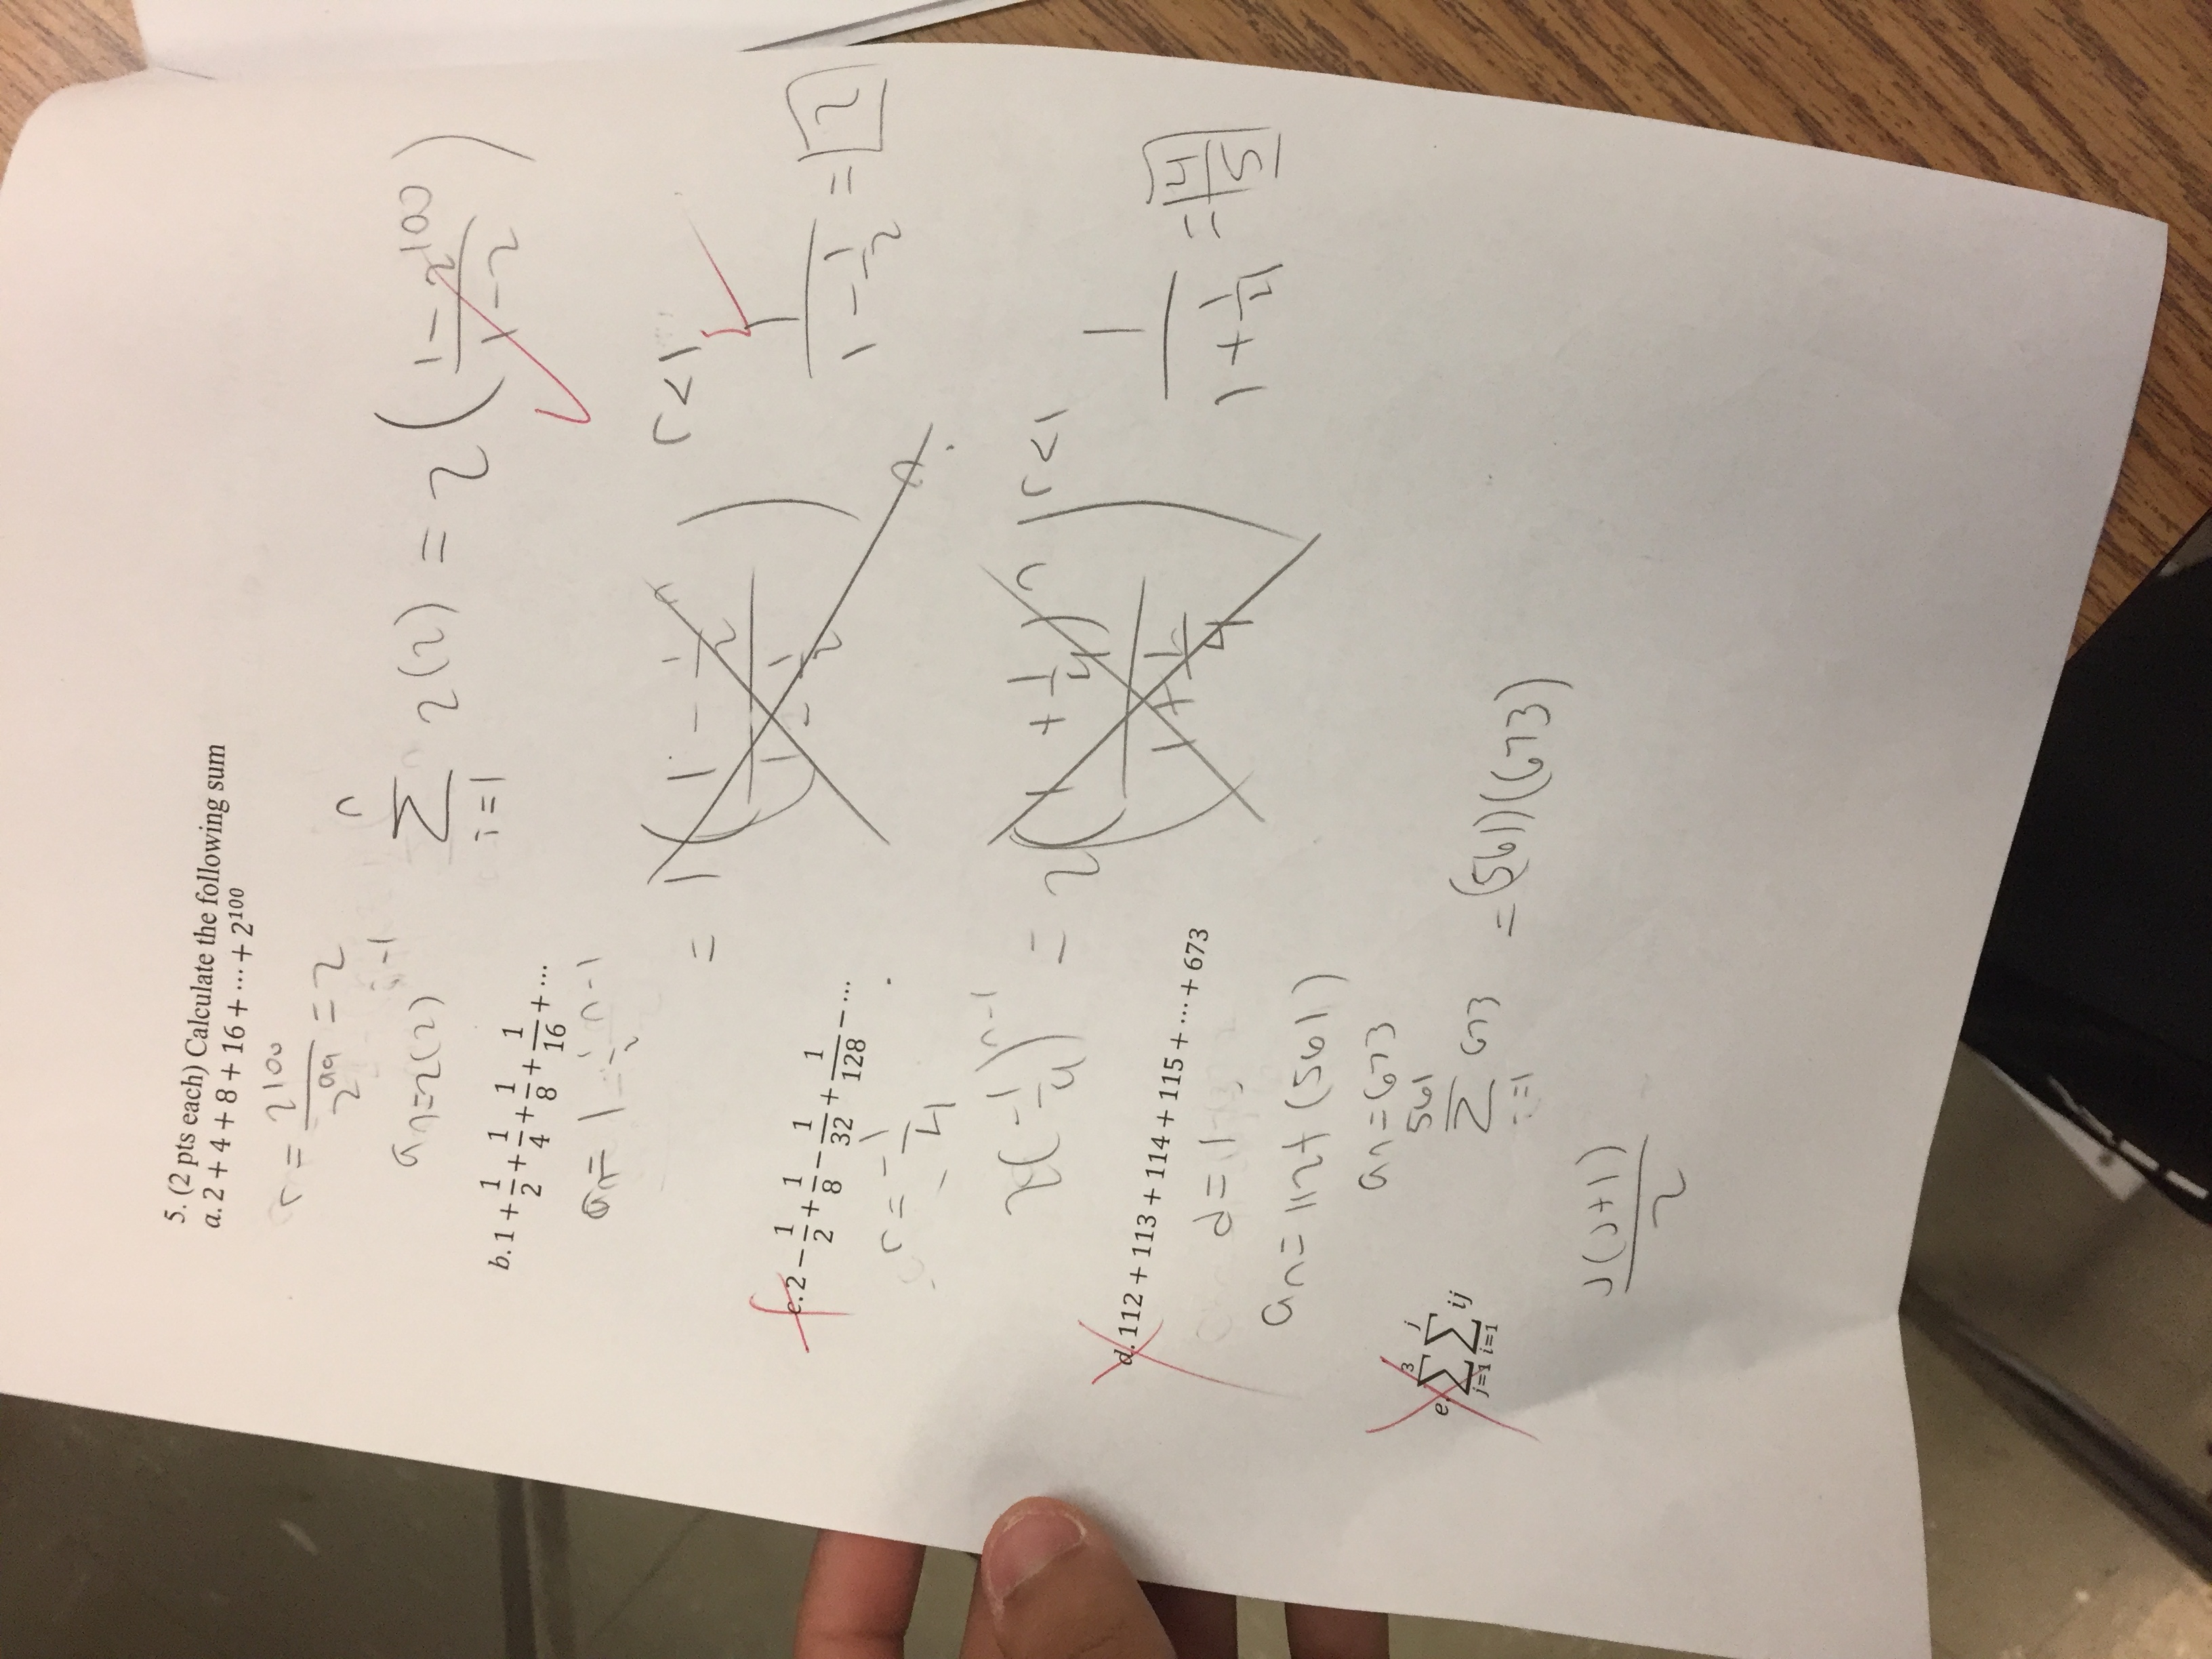 5. (2 pts each) Calculate the following sum
a. 2 + 4 + 8 + 16 + ⋯ + 2^100
r = 2^100 / 2^99 = 2
a_n = 2(2)^i-1
n ∑ i=1 2(2) = 2 ( 1 - 2^100 / 1 - 2 )
b. 1 + 1/2 + 1/4 + 1/8 + 1/16 + ⋯
a_n = 1 - 1/2 ^n-1
= 1 ( 1 - 1/2 ^n / 1 - 1/2 )
r < 1
1 / 1 - 1/2 = 2
c. 2 − 1/2 + 1/8 − 1/32 + 1/128 − ⋯
r = -1/4
2(-1/4)^n-1 = 2 ( 1 + 1/4 )^n / 1 + 1/4 )
r < 1
1 / 1 + 1/4 = 4/5
d. 112 + 113 + 114 + 115 + ⋯ + 673
d = 1
a_n = 112 + (561)
a_n = 673
561 ∑ i=1 673 = (561)(673)
e. 3 ∑ j=1 j ∑ i=1 ij
j(j+1) / 2